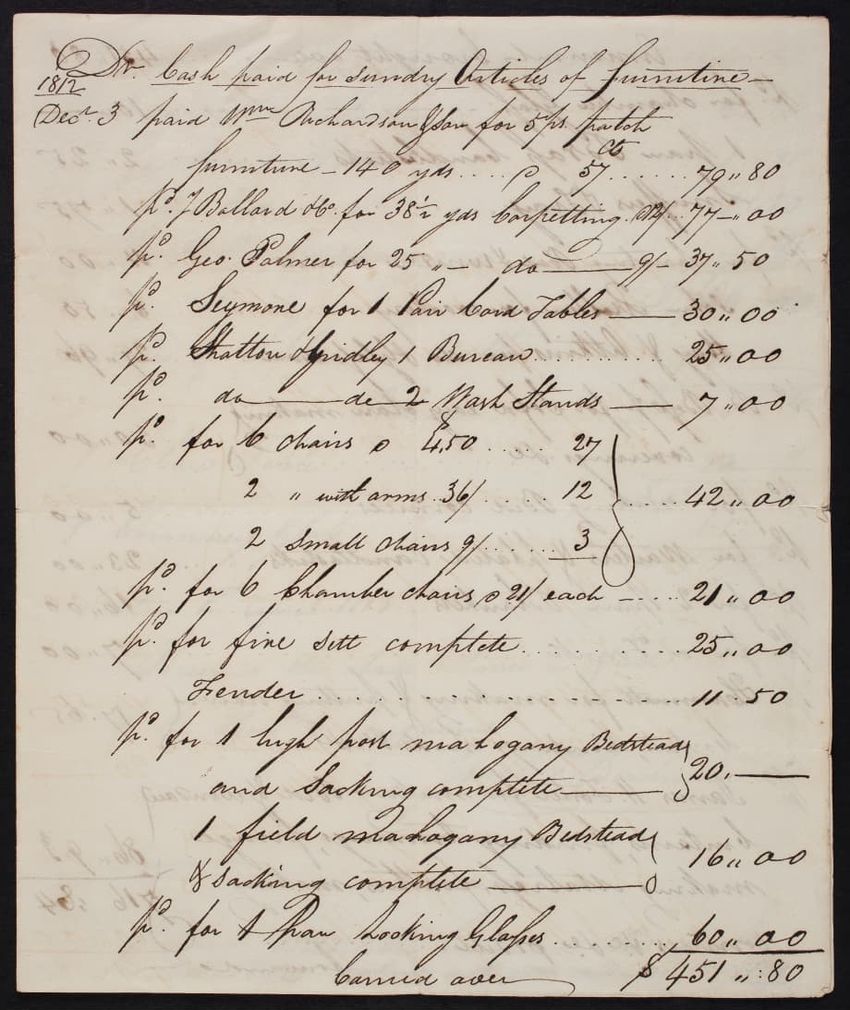 Dr. Cash paid for sundry Articles of furniture—
1812
Decr. 3 paid Wm Richardson & Son for 5 ps. patch
furniture – 140 yds .... @ 57 cts ...... 79,,80
pd. J Ballard & Co. for 38½ yds Carpetting. 12/. 77–,,00
pd. Geo. Palmer for 25 ,,– do—— 9/– 37,,50
pd. Seymore for 1 Pair Card Tables —— 30,,00
pd. Stratton & Gridley 1 Bureau.......... 25,,00
pd. do——de 2 Wash Stands —— 7,,00
pd. for 6 chairs @ $4,50 ..... 27
2 ,, with arms .. 36/ ..... 12 .... 42,,00
2 small chairs 9/ ...... 3
pd. for 6 Chamber chairs @ 21/ each –.... 21,,00
pd. for fire sett complete.......... 25,,00
Fender .................. 11..50
pd. for 1 high post mahogany Bedstead
and Sacking complete—— 20,——
1 field mahogany Bedstead
& sacking complete —— 16,,00
pd. for 1 Pair Looking Glasses......... 60,,00
Carried over $451,,:80